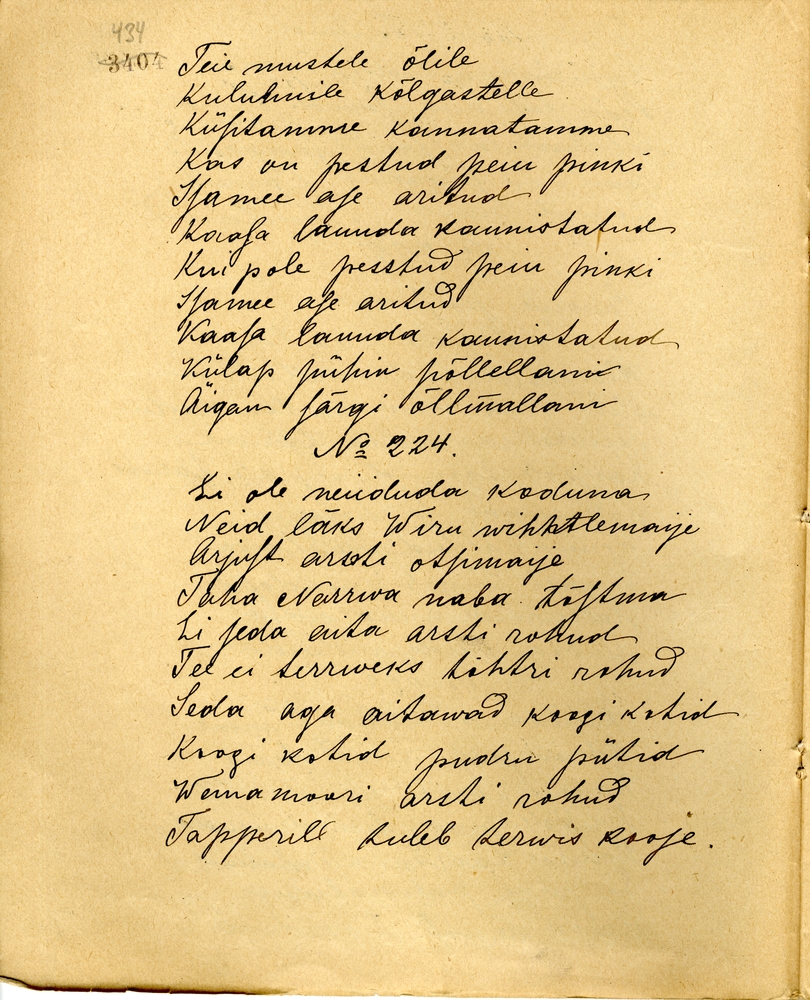 434
3404
Teie mustele õlile
Kuluhnile kõlgastelle
Küsitamme kannatamme
Kas on pestud peiu pinki
Isamee ase aritud
Kaasa lauuda kaunistatud
Kui pole pesstud peiu pinki
Isamee ase aritud
Kaasa lauuda kaunistatud
Külap pühin põllellani
Äigan särgi õllmallani
No 224.
Ei ole neiiduda koduna
Neid läks Wiru wihhtlemaije
Arjust arsti otsimaije
Taha Narrwa naba tõstma
Ei seda aita arsti rohud
Tee ei terrweks tohtri rohud
Seda aga aitawad koogi kotid
Koogi kotid pudru pütid
Wanamoori arsti rohud
Tapperill tuleb terwis kooje.